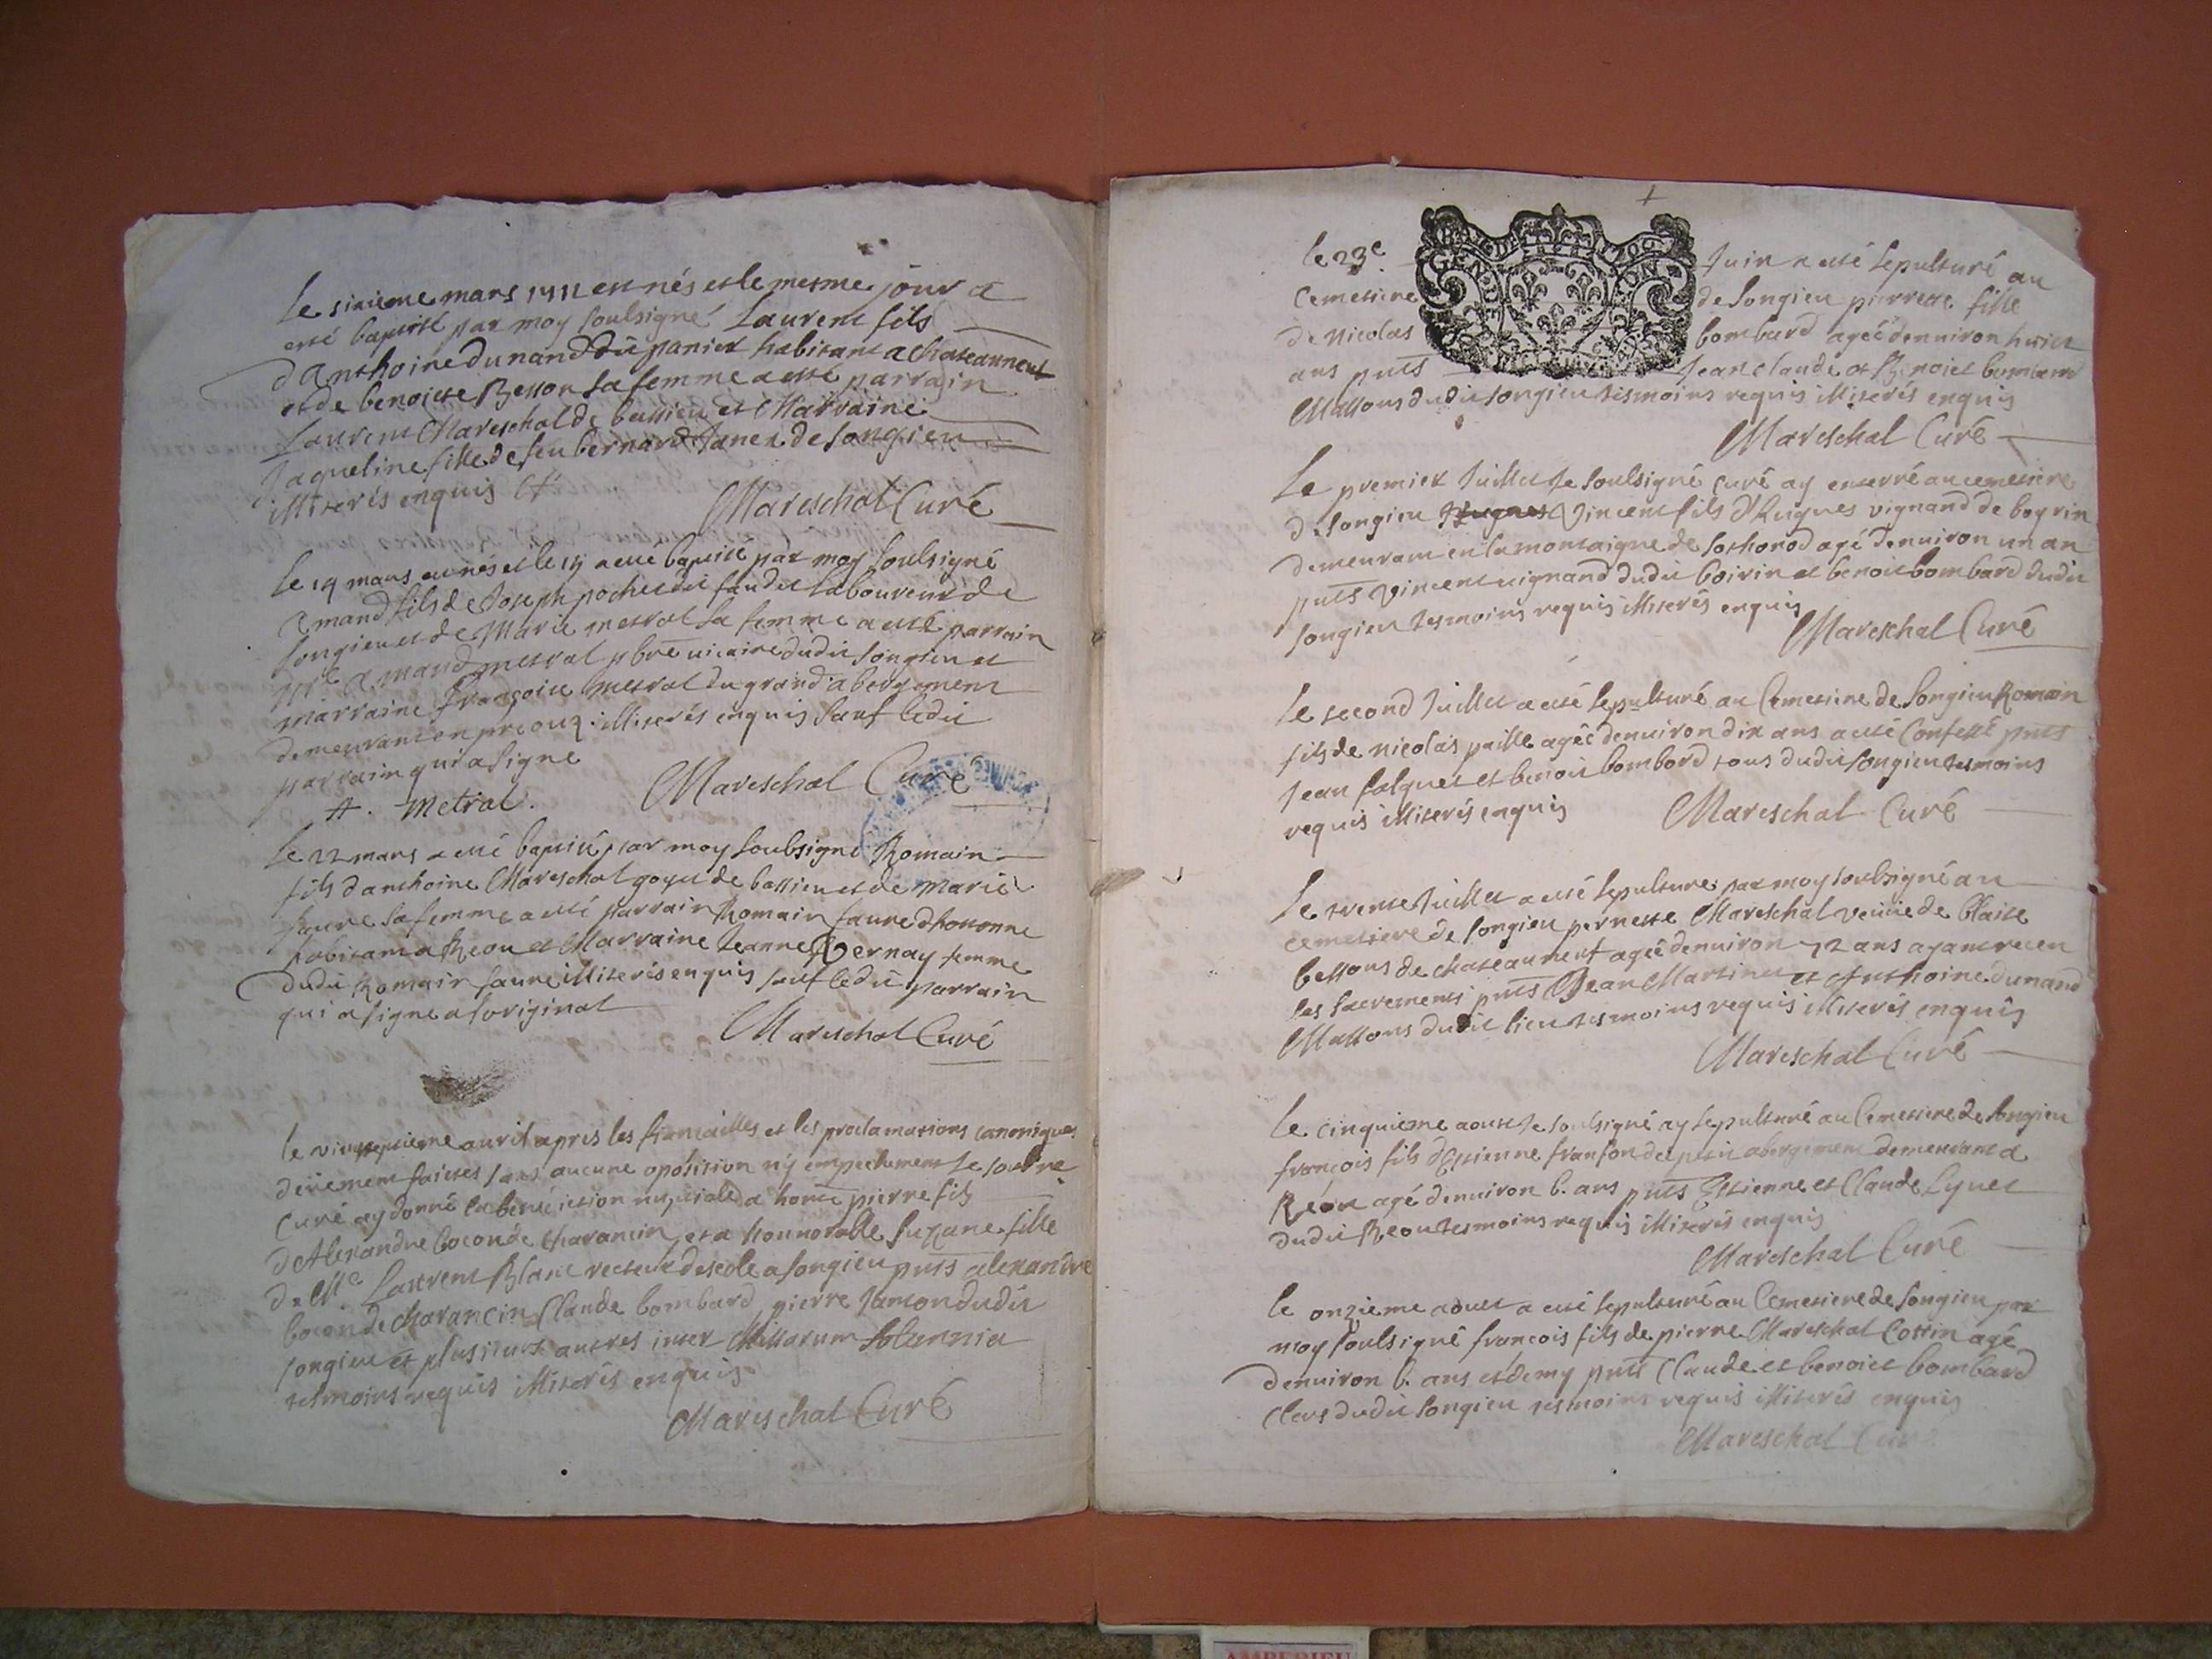 Le sixieme mars 1711 est nés et le mesme jour a
esté baptisé par moy soulsigné Laurent fils
d'Anthoine dunand dit panier habitant a chateauneuf
et de benoitte Besson sa femme a esté parrain
Laurent Mareschal de bassieu et Marraine
Jaqueline fille de feu bernard Janex de songieu
illiterés enquis
Mareschal Curé
le 14 mars est nés et le 15 a esté baptisé par moy soulsigné
Amand fils de Joseph pochet dit laboureur de
songieu et de Marie mestral sa femme a esté parrain
Mre Amand mestral pbre vicaire dudit songieu et
marraine françoise mestral du grand abergement
demeurant en illiterés enquis sauf ledit
parrain qui a signé
A. metral. Mareschal Curé
Le 22 mars a esté baptisé par moy soulsigné Romain
fils d'anthoine Mareschal goyet de bassieu et de Marie
faure sa femme a esté parrain Romain faure d'hotonne
habitant a Reou et Marraine Jeanne Vernay femme
dudit Romain faure illiterés enquis sauf ledit parrain
qui a signé a l'original
Mareschal Curé
le vintseptieme auril apres les fiancailles et les proclamations canoniques
deuement faittes sans aucune oposition ny empechement Je soulsne
Curé ay donné la benediction nuptiale a honte pierre fils
d'Alexandre bocon de charancin et a honnorable Suzane fille
de Me Laurent Blanc recteur descole a songieu pnts alexandre
bocon de charancin Claude bombard pierre Janton dudit
songieu et plusieurs autres inter Missarum solemnia
tesmoins requis illiterés enquis
Mareschal Curé
le 23e Juin a esté sepulturé au
Cemetiere de songieu pierrette fille
de Nicolas bombard agée denuiron huict
ans pnts Jean claude et Benoict bombard
Massons dudit songieu tesmoins requis illiterés enquis
Mareschal Curé
Le premier Juillet Je soulsigné curé ay enterré au cemetiere
de songieu Hugues Vincent fils d'Hugues vignand de boyrin
demeurant en la montaigne de sothonod agé denuiron un an
pnts vincent vignand dudit boirin et benoit bombard dudit
songieu tesmoins requis illiterés enquis
Mareschal Curé
Le second Juillet a esté sepulturé au Cemetiere de songieu Romain
fils de nicolas paille agée denuiron dix ans a esté Confessé pnts
Jean falquet et benoit bombard tous dudit songieu tesmoins
requis illiterés enquis Mareschal Curé
Le trente Juillet a esté sepulture par moy soulsigné au
cemetiere de songieu pernette Mareschal veuve de blaise
bessons de chateauneuf agée denuiron 72 ans ayant receu
les sacrements pnts Jean Martinet et Anthoine dunand
Massons dudit lieu tesmoins requis illiterés enquis
Mareschal Curé
Le cinquieme aoust Je soulsigné ay sepulturé au Cemetiere de songieu
françois fils d'Estienne franson du petit abergement demeurant a
Reou agé denuiron 6. ans pnts Estienne et Claude Lyvet
dudit Reou tesmoins requis illiterés enquis
Mareschal Curé
le onzieme aoust a esté sepulturé au Cemetiere de songieu par
moy soulsigné francois fils de pierre Mareschal Cottin agé
denuiron 6. ans et demy pnts Claude et benoict bombard
Clers dudit songieu tesmoins requis illiterés enquis
Mareschal Curé